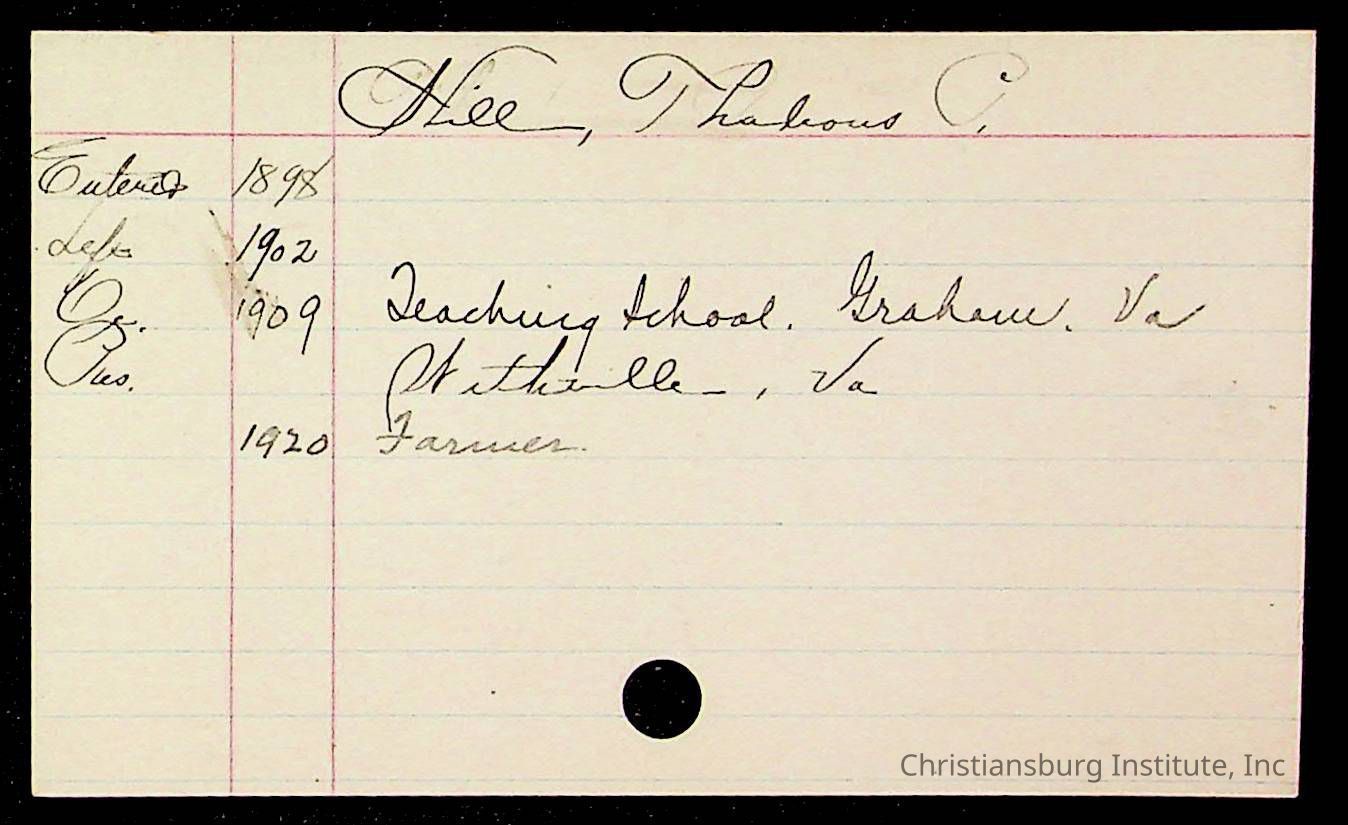 Hill, Thadious C.
Entered 1898
Left 1902
Oc. 1909 Teaching school. Graham. Va
Pres. Witheville, Va
1920 Farmer
Christiansburg Institute, Inc